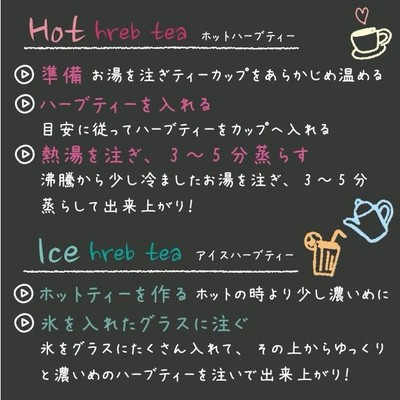 Hot hreb tea ホットハーブティー
準備 お湯を注ぎティーカップをあらかじめ温める
ハーブティーを入れる
目安に従ってハーブティーをカップへ入れる
熱湯を注ぎ、3～5分蒸らす
沸騰から少し冷ましたお湯を注ぎ、3～5分
蒸らして出来上がり!
Ice hreb tea アイスハーブティー
ホットティーを作る ホットの時より少し濃いめに
氷を入れたグラスに注ぐ
氷をグラスにたくさん入れて、その上からゆっくり
と濃いめのハーブティーを注いで出来上がり!